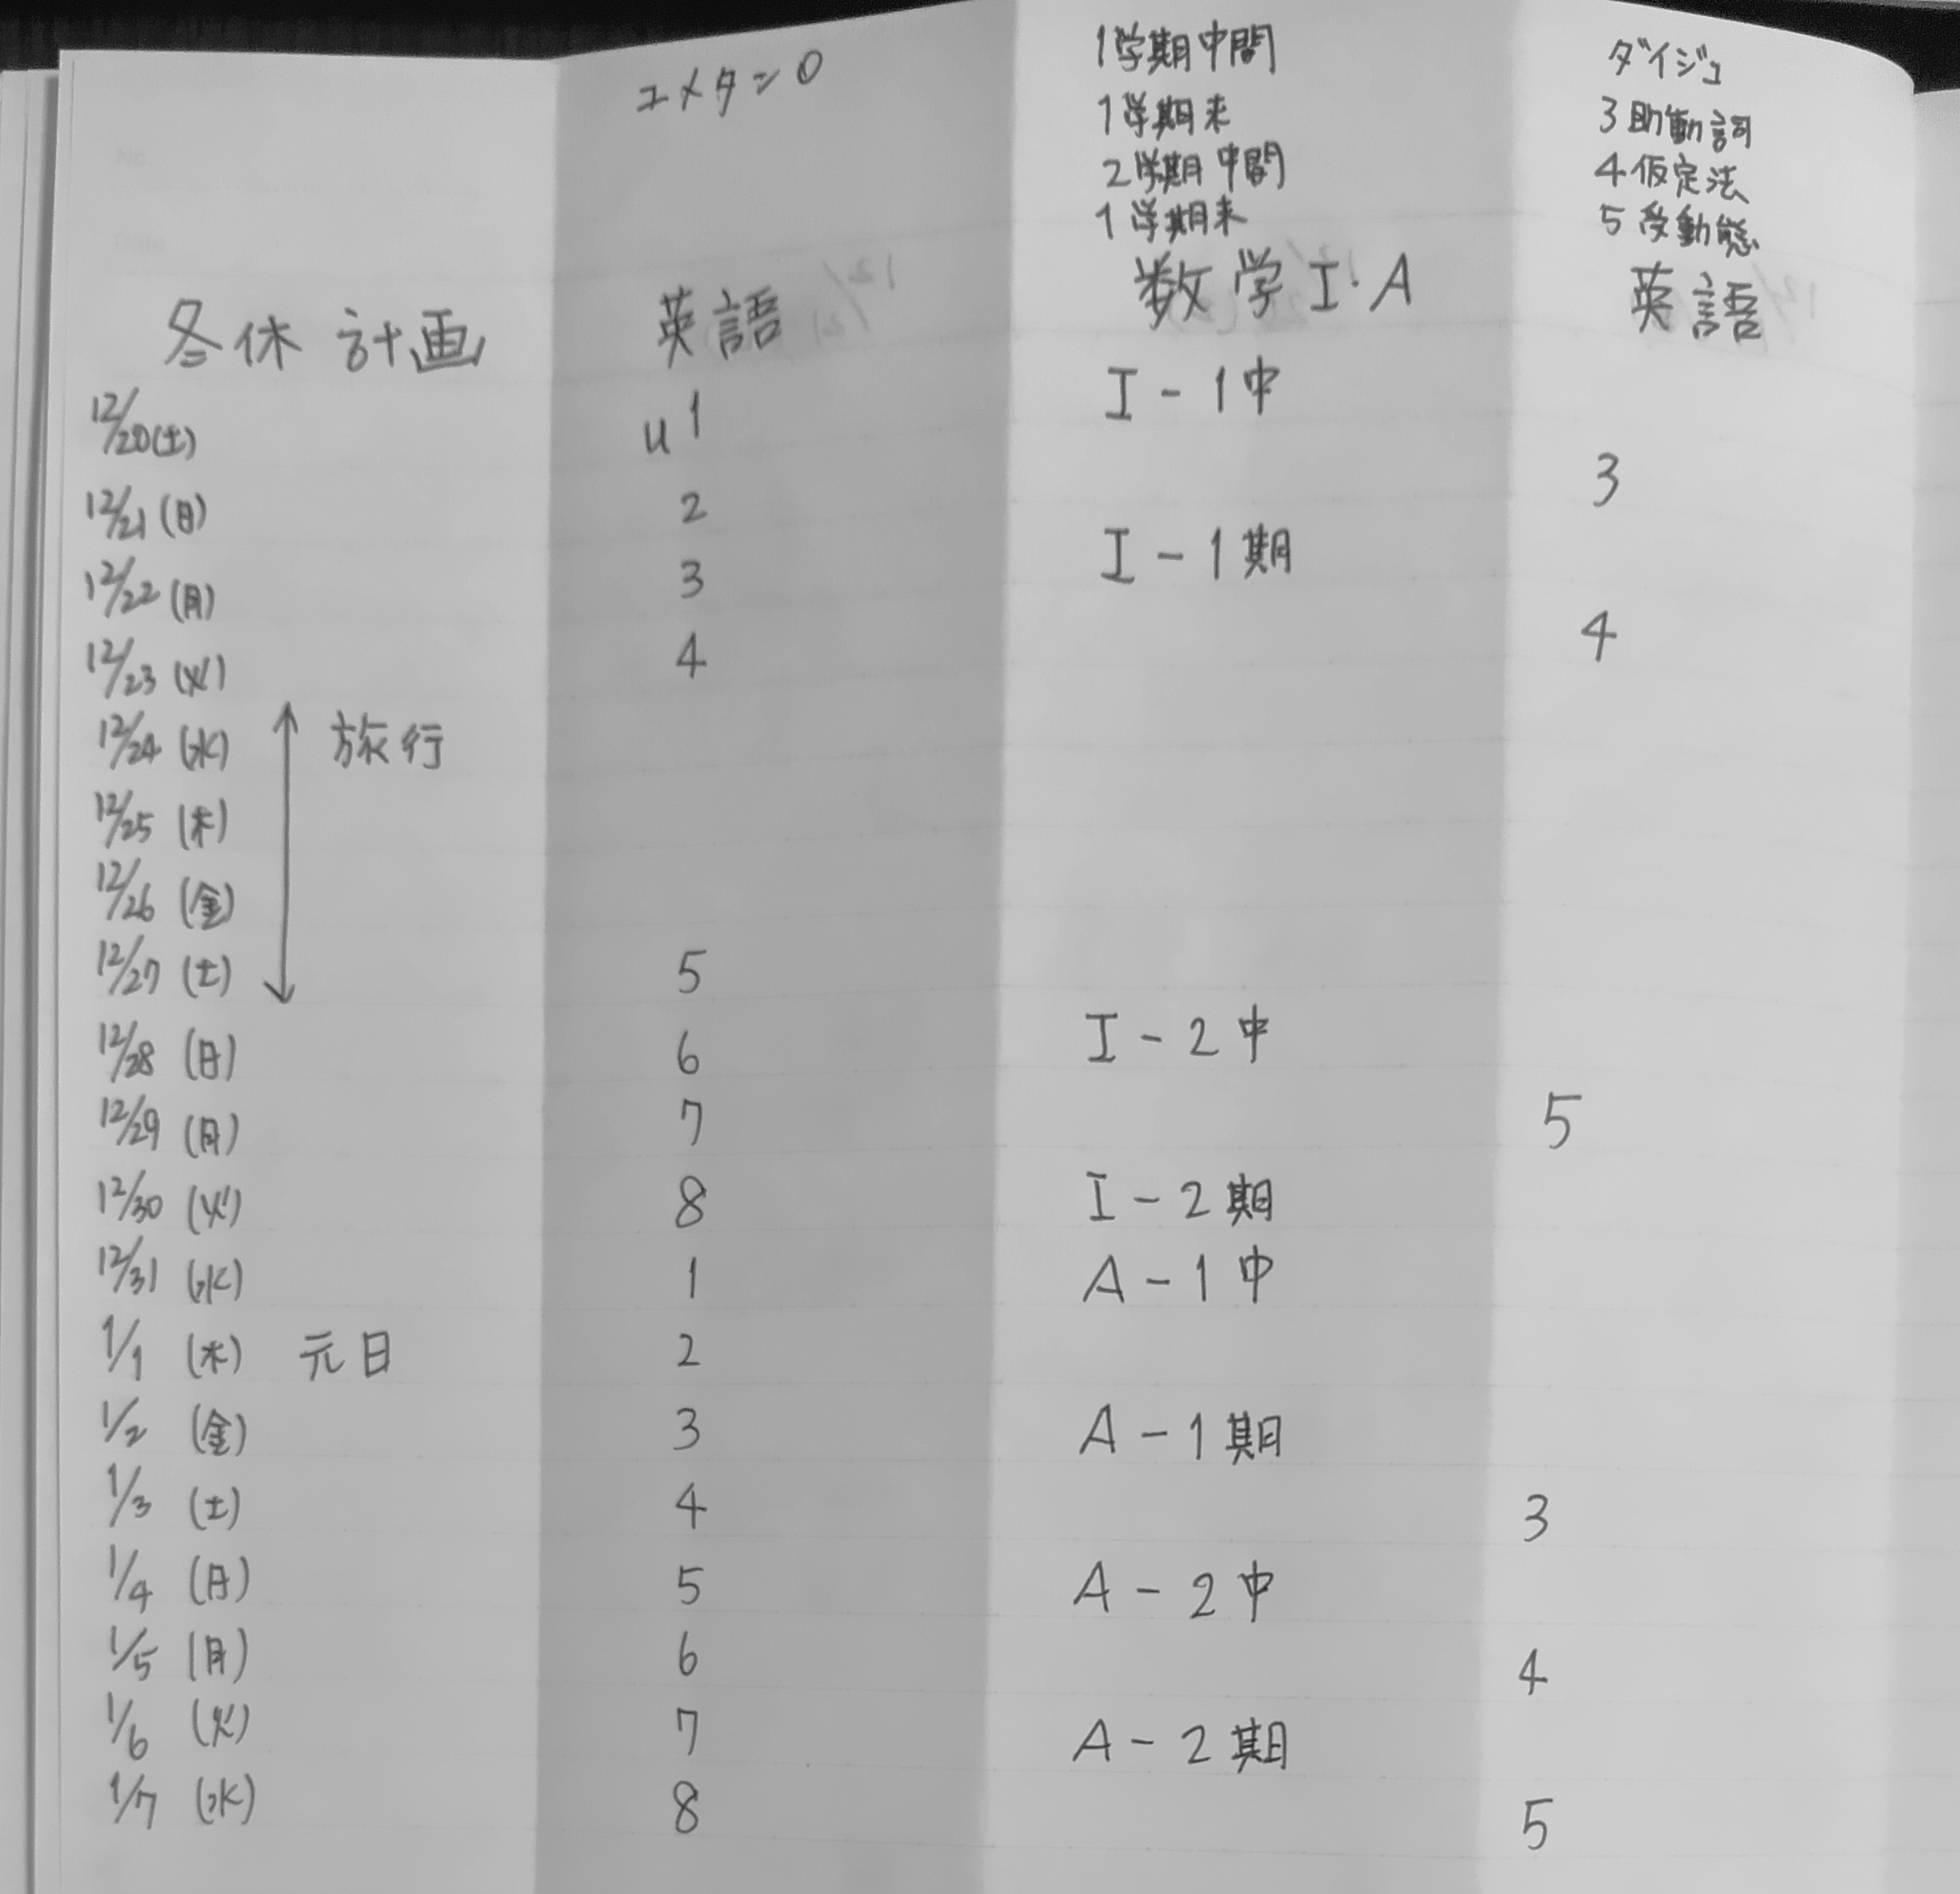 ユメタン0
1学期中間
1学期末
2学期中間
1学期末
ダイジェ
3助動詞
4仮定法
5受動態
冬休計画 英語 数学I・A 英語
12/20(土) u1 I-1中
12/21(日) 2 3
12/22(月) 3 I-1期
12/23(火) 4 4
12/24(水) 旅行
12/25(木)
12/26(金)
12/27(土) 5
12/28(日) 6 I-2中
12/29(月) 7 5
12/30(火) 8 I-2期
12/31(水) 1 A-1中
1/1(木) 元日 2
1/2(金) 3 A-1期
1/3(土) 4 3
1/4(日) 5 A-2中
1/5(月) 6 4
1/6(火) 7 A-2期
1/7(水) 8 5